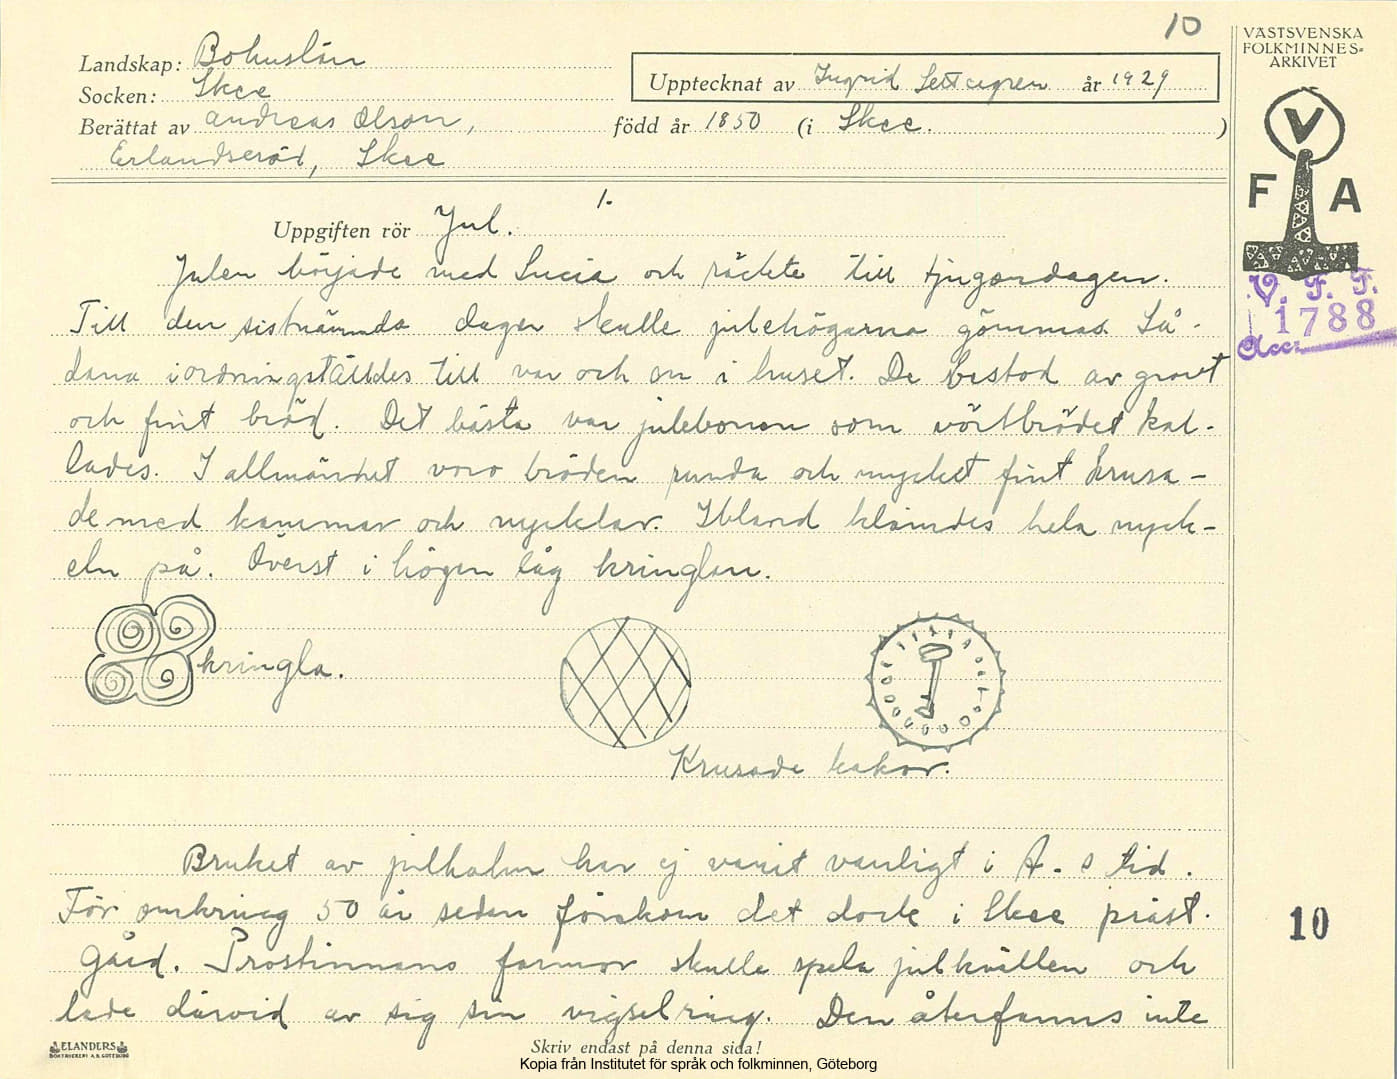 10
VÄSTSVENSKA
FOLKMINNES-
ARKIVET
Landskap: Bohuslän
Socken: Skee
Upptecknat av Ingrid år 1929
Berättat av Andreas Olson,
född år 1850 (i Skee. )
Erlandseröd, Skee
V
F A
V. F. F.
1788
Acc:
1.
Uppgiften rör Jul.
Julen började med Lucia och räckte till tjugondagen.
Till den sistnämnda dagen skulle julehögarna gömmas. Så-
dana iordningställdes till var och en i huset. De bestod av grovt
och fint bröd. Det bästa var julebonon som vörtbrödet kal-
lades. I allmänhet voro bröden runda och mycket fint krusa-
de med kammar och nycklar. Ibland klämdes hela nyck-
eln på. Överst i högen låg kringlan.
kringla.
Krusade kakor.
Bruket av julhalm har ej varit vanligt i A-s tid.
För omkring 50 år sedan förekom det dock i Skee präst-
gård. Prostinnans farmor skulle spela julkvällen och
lade därvid av sig sin vigselring. Den återfanns inte
10
ELANDERS
BOKTRYCKERI A.B. GÖTEBORG
Skriv endast på denna sida!
Kopia från Institutet för språk och folkminnen, Göteborg